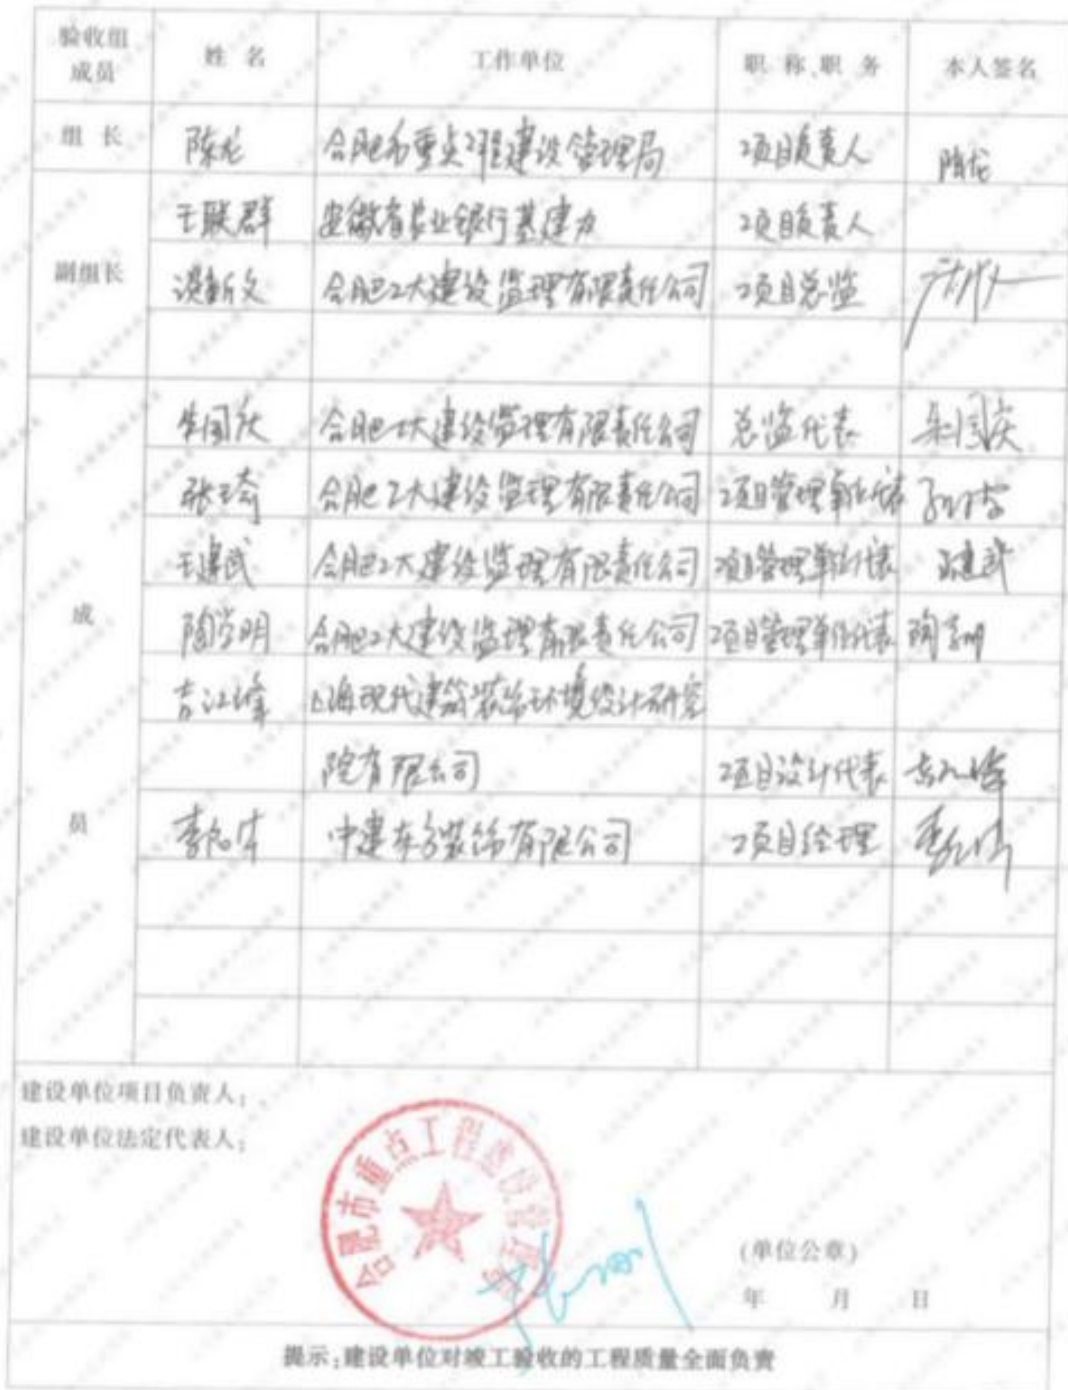 验收组成员 姓 名 工作单位 职 称、职 务 本人签名
组 长 陈龙 合肥市重点工程建设管理局 项目负责人 陈龙
副组长 王联群 安徽省农业银行基建办 项目负责人
文 合肥工大建设监理有限责任公司 项目总监
成员 朱国庆 合肥工大建设监理有限责任公司 总监代表 朱国庆
张琦 合肥工大建设监理有限责任公司 项目管理单位代表
王建武 合肥工大建设监理有限责任公司 项目管理单位代表 王建武
陶学明 合肥工大建设监理有限责任公司 项目管理单位代表 陶学明
吉江峰 上海现代建筑装饰环境设计研究
院有限公司 项目设计代表 吉江峰
李 中建东方装饰有限公司 项目经理
建设单位项目负责人:
建设单位法定代表人:
合肥市重点工程建设管理局
(单位公章)
年 月 日
提示:建设单位对竣工验收的工程质量全面负责